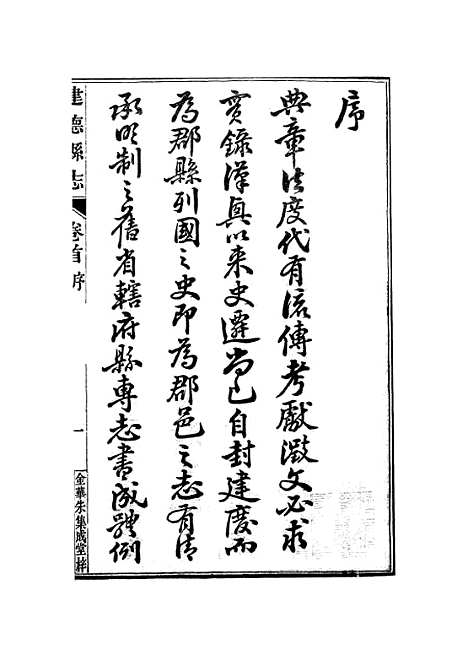 序
典章法度代有流傳考獻徵文必求
實錄漢具以来史遷尚已自封建廢而
為郡縣列國之史即為郡邑之志有清
承明制之舊省轄府縣專志書成體例
建德縣志
卷首序
一
金華朱集成堂梓